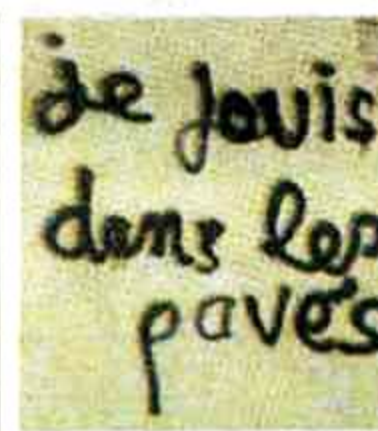 je jouis
dans les
pavés